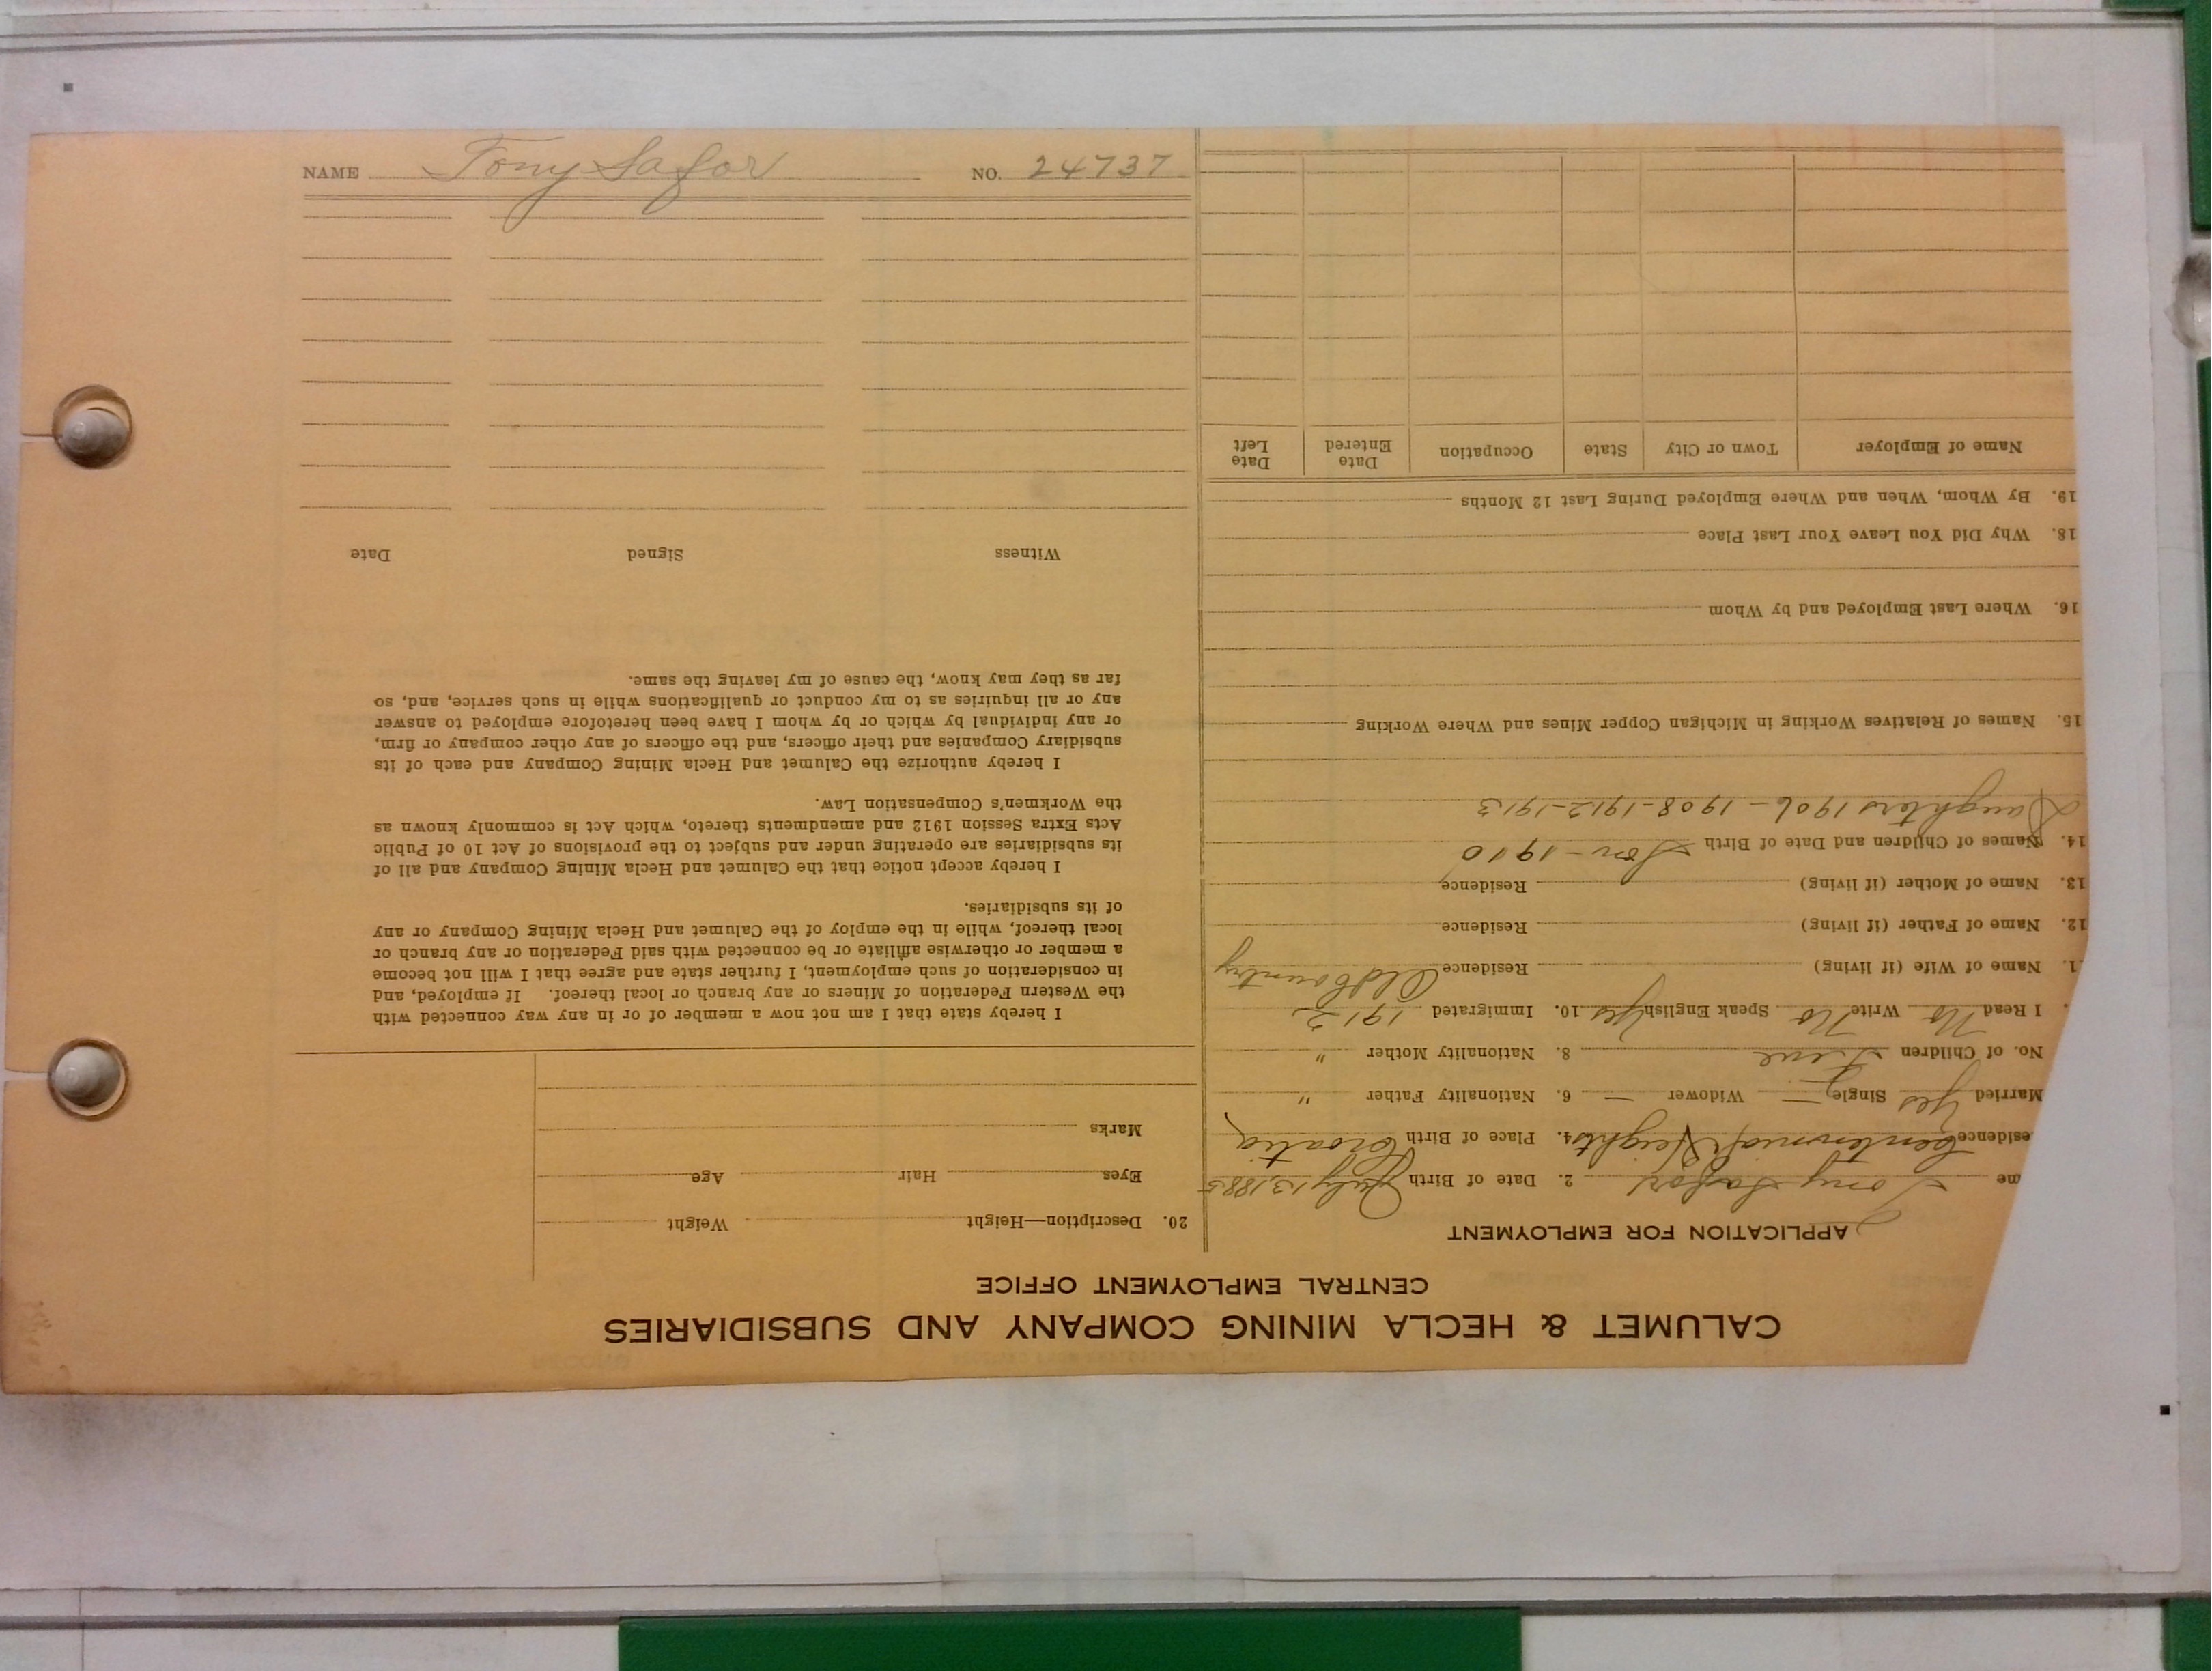 NAME Tony Safor NO. 24737
CALUMET & HECLA MINING COMPANY AND SUBSIDIARIES
CENTRAL EMPLOYMENT OFFICE
APPLICATION FOR EMPLOYMENT
me Tony Safor 2. Date of Birth July 13, 1885
esidence Centennial Heights 4. Place of Birth Croatia
Married Yes Single — Widower — 6. Nationality Father "
No. of Children Five 8. Nationality Mother "
. I Read No Write No Speak English Yes 10. Immigrated 1912
1. Name of Wife (if living) Residence Old Country
12. Name of Father (if living) Residence
13. Name of Mother (if living) Residence
14. Names of Children and Date of Birth Son - 1910
Daughters 1906 - 1908-1912-1913
15. Names of Relatives Working in Michigan Copper Mines and Where Working
16. Where Last Employed and by Whom
18. Why Did You Leave Your Last Place
19. By Whom, When and Where Employed During Last 12 Months
Name of Employer Town or City State Occupation Date Entered Date Left
20. Description—Height Weight
Eyes Hair Age
Marks
I hereby state that I am not now a member of or in any way connected with
the Western Federation of Miners or any branch or local thereof. If employed, and
in consideration of such employment, I further state and agree that I will not become
a member or otherwise affiliate or be connected with said Federation or any branch or
local thereof, while in the employ of the Calumet and Hecla Mining Company or any
of its subsidiaries.
I hereby accept notice that the Calumet and Hecla Mining Company and all of
its subsidiaries are operating under and subject to the provisions of Act 10 of Public
Acts Extra Session 1912 and amendments thereto, which Act is commonly known as
the Workmen's Compensation Law.
I hereby authorize the Calumet and Hecla Mining Company and each of its
subsidiary Companies and their officers, and the officers of any other company or firm,
or any individual by which or by whom I have been heretofore employed to answer
any or all inquiries as to my conduct or qualifications while in such service, and, so
far as they may know, the cause of my leaving the same.
Witness Signed Date